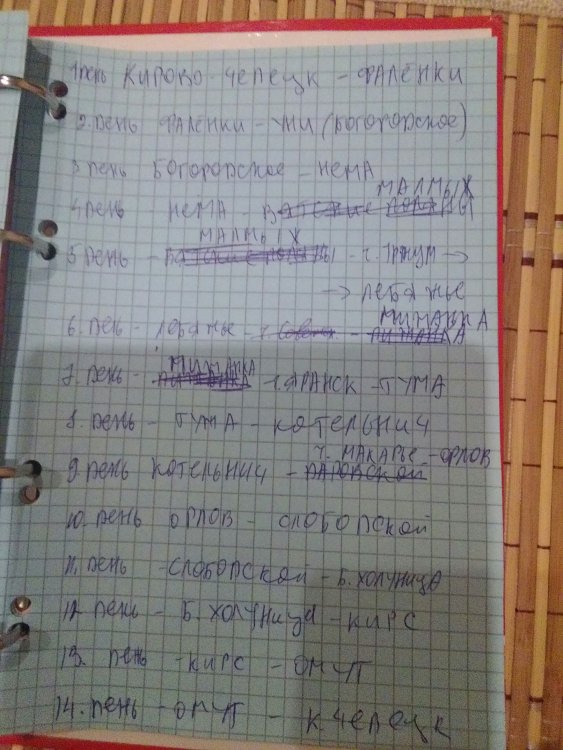 1 день КИРОВО-ЧЕПЕЦК - ФАЛЁНКИ
2. День ФАЛЕНКИ - УНИ (БОГОРОДСКОЕ)
3 День БОГОРОДСКОЕ - НЕМА
МАЛМЫЖ
4 День - НЕМА - ВЯТСКИЕ ПОЛЯНЫ
МАЛМЫЖ
5 День - ВЯТСКИЕ ПОЛЯНЫ - г. Уржум →
→ ЛЕБЯЖЬЕ
6. День - ЛЕБЯЖЬЕ - г. Советск - ПИЖАНКА
7. День - г. ЯРАНСК - ТУЖА
8. День - ТУЖА - КОТЕЛЬНИЧ
ч. МАКАРЬЕ - ОРЛОВ
9. День КОТЕЛЬНИЧ - ДАРОВСКОЙ
10. День ОРЛОВ - СЛОБОДСКОЙ
11. День - СЛОБОДСКОЙ - Б. ХОЛУНИЦА
12. День - Б. ХОЛУНИЦА - КИРС
13. День - КИРС - ОМУТ
14. День - ОМУТ - К. ЧЕПЕЦК